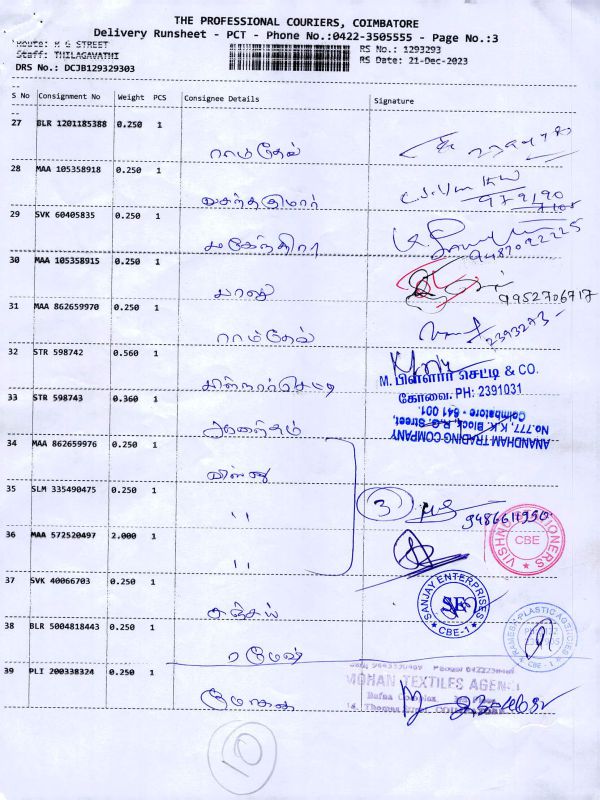 THE PROFESSIONAL COURIERS, COIMBATORE
Delivery Runsheet - PCT - Phone No.:0422-3505555 - Page No.:3
Route: M G STREET
Staff: THILAGAVATHI
DRS No.: DCJB129329303
RS No.: 1293293
RS Date: 21-Dec-2023
S No Consignment No Weight PCS Consignee Details Signature
27 BLR 1201185388 0.250 1
ராம்தேவ்
28 MAA 105358918 0.250 1
வசந்தகுமார்
29 SVK 60405835 0.250 1
மகேந்திரா
9487092225
30 MAA 105358915 0.250 1
பாலு
9952706717
31 MAA 862659970 0.250 1
ராம்தேவ்
2393273
32 STR 598742 0.560 1
M. பிள்ளார் செட்டி & CO.
கோவை. PH: 2391031
33 STR 598743 0.360 1
ANANDHAM TRADING COMPANY
No.777, K.K. Block, R.G. Street,
Coimbatore - 641 001.
34 MAA 862659976 0.250 1
விஷ்ணு
35 SLM 335490475 0.250 1
''
3
VISHNU STATIONERS
CBE
36 MAA 572520497 2.000 1
''
37 SVK 40066703 0.250 1
சஞ்சய்
SANJAY ENTERPRISES
CBE-1
38 BLR 5004818443 0.250 1
ரமேஷ்
RAMESH PLASTIC AGENCIES
CBE - 1
39 PLI 200338324 0.250 1
மோகன்
MOHAN TEXTILES AGENCY
10